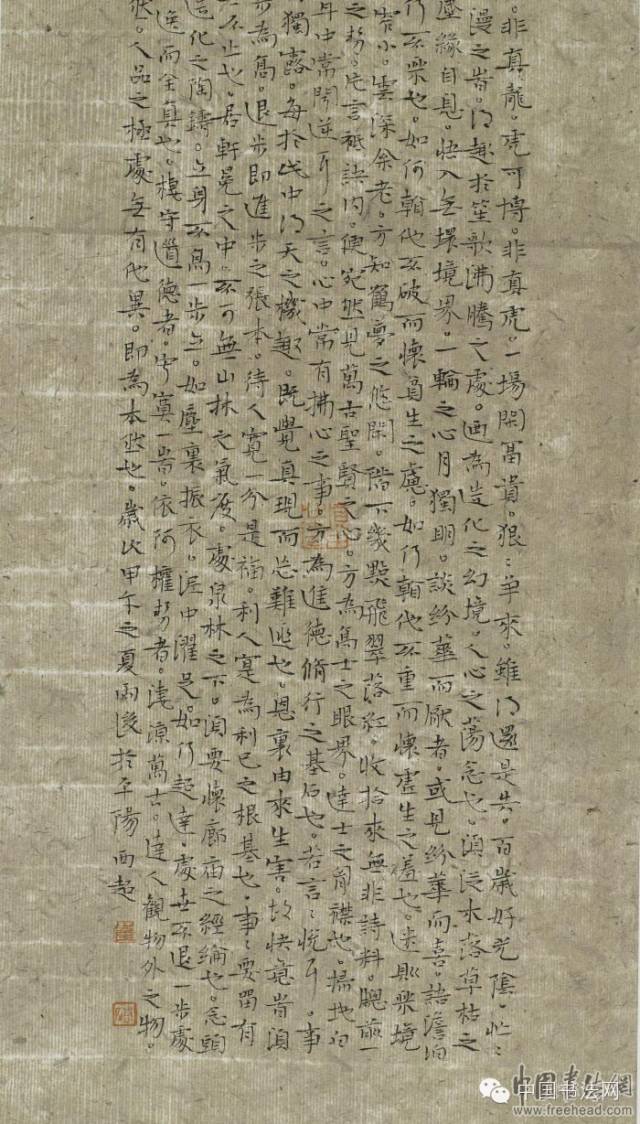 。非真龍。虎可搏。非真虎。一場閑富貴。狠〻爭來。雖得還是失。百歲好光陰。忙〻
漫之時。得趣於笙歌沸騰之處。画為造化之幻境。人心之蕩念也。須從木落草枯之
塵緣自息。悟入無壞境界。一輪之心月獨明。談紛華而厭者。或見紛華而喜。語澹泊
不樂也。如何翻他不破而懷負生之慮。如何翻他不重而懷虛生之羞也。迷則樂境
小。雲深余老。方知鶴夢之悠閑。階下幾點飛翠落紅。收拾來無非詩料。窗前一
之形。片言祗訣內。便宛然見萬古聖賢之心。方為高士之眼界。達士之胸襟也。掃地白
耳中常聞逆耳之言。心中常有拂心之事。方為進德脩行之基石也。若言〻悅耳。事
獨露。每於此中得天之機趣。既覺真現而忘難逃也。恩裏由來生害。故快意時須
步為高。退步即進步之張本。待人寬一分是福。利人寔為利己之根基也。事〻要留有
不止也。居軒冕之中。不可無山林之氣度。處泉林之下。須要懷廊廟之經綸也。念頭
造化之陶鑄。立身不高一步立。如塵裏振衣。泥中濯足。如何超達。處世不退一步處
逸而全真也。棲守道德者。寂寞一時。依阿權勢者。淒涼萬古。達人觀物外之物。
然。人品之極處無有他異。即為本然也。歲次甲午之夏雨後於平陽西超
中国书法网
中国书法網
www.freehead.com